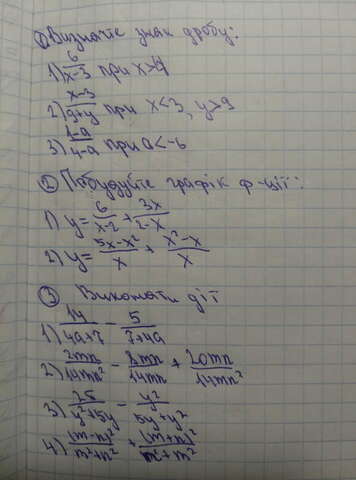 ① Визначте знак дробу:
1) 6/(x-3) при x>4
2) (x-3)/(9+y) при x<3, y>9
3) (1-a)/(4-a) при a<-6
② Побудуйте графік ф-ції:
1) y = 6/(x-2) + 3x/(2-x)
2) y = (5x-x²)/x + (x²-x)/x
③ Виконати дії
1) 14/(4a+7) - 5/(7+4a)
2) 2mn/14mn² - 8mn/14mn + 20mn/14mn²
3) 25/(y²+5y) - y²/(5y+y²)
4) (m-n)²/(m²+n²) + (m+n)²/(n²+m²)